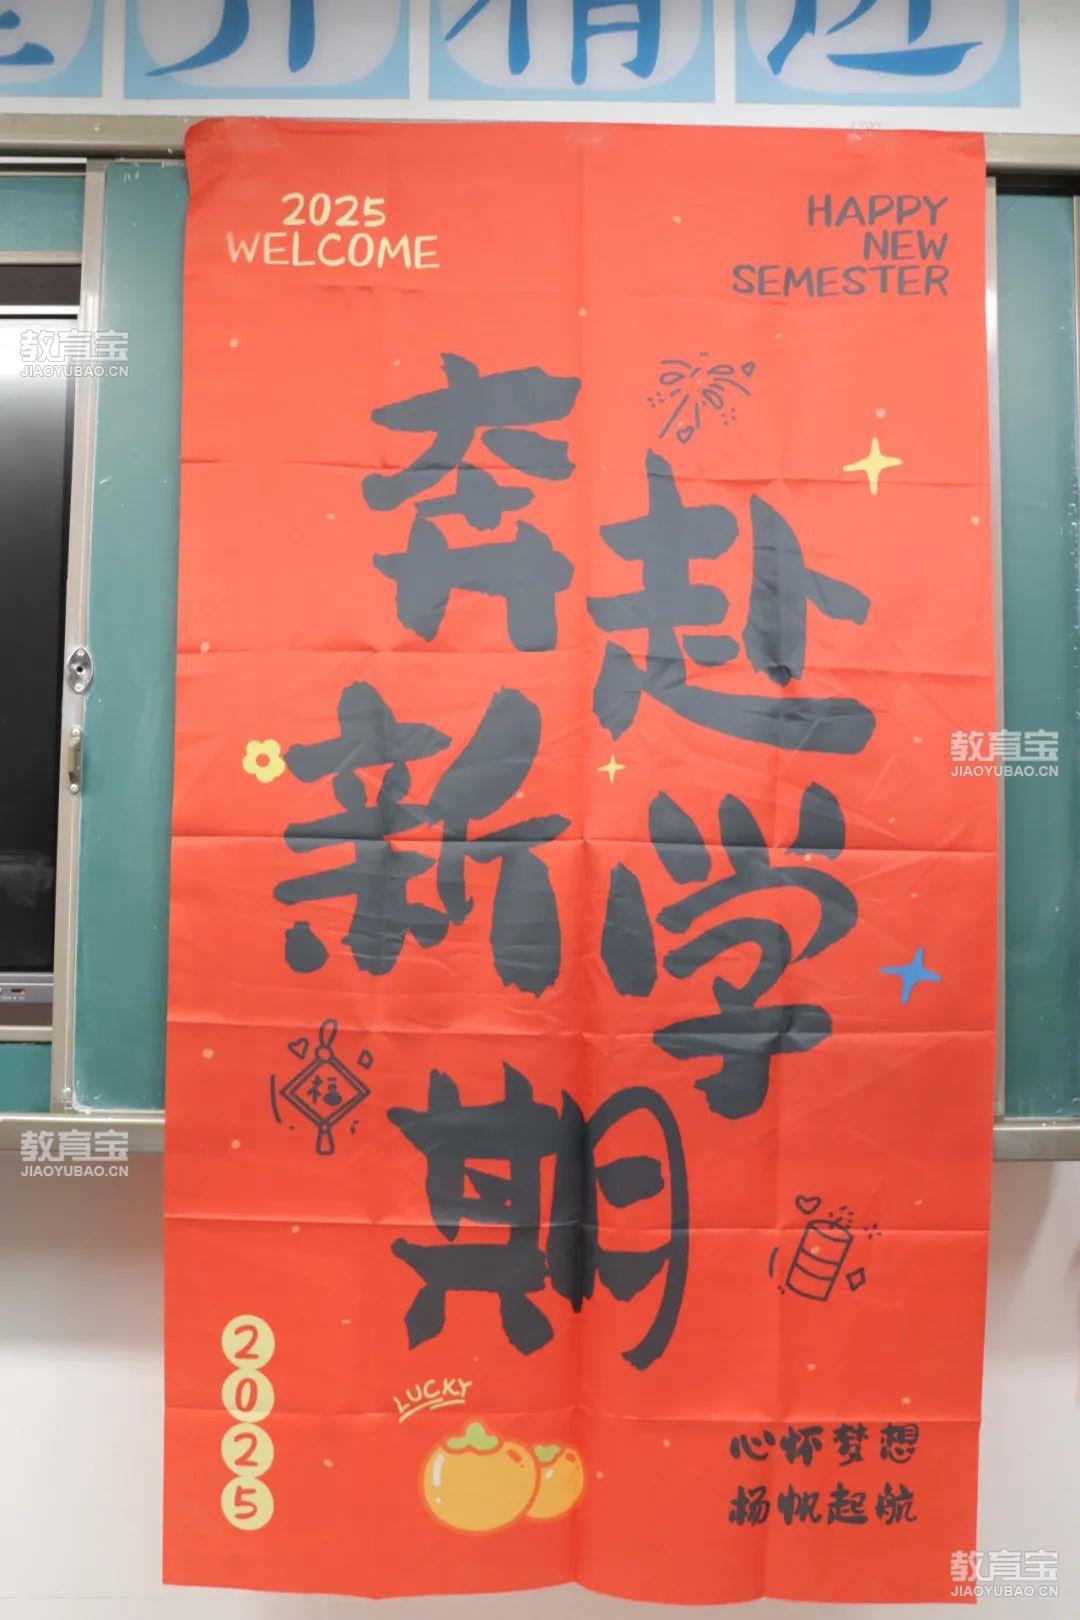 升 精 进
2025
WELCOME
HAPPY
NEW
SEMESTER
奔赴
新学
期
福
2025
LUCKY
心怀梦想
杨帆起航
教育宝
JIAOYUBAO.CN
教育宝
JIAOYUBAO.CN
教育宝
JIAOYUBAO.CN
教育宝
JIAOYUBAO.CN